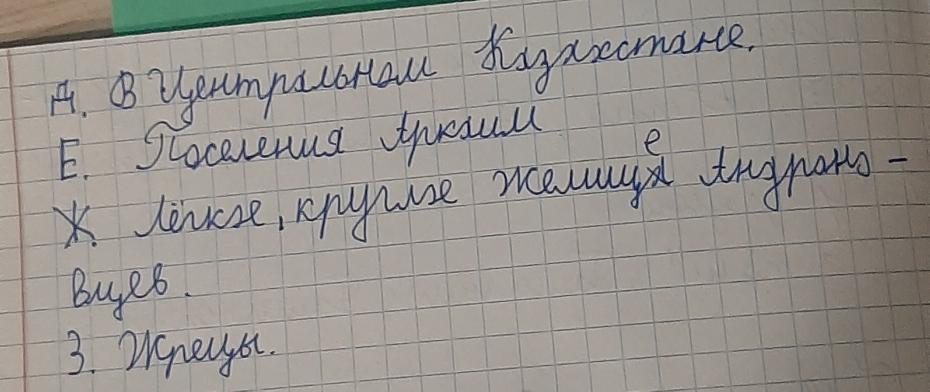 Д. В Центральном Казахстане.
Е. Поселения Аркаим
Ж. Лёгкое, круглое жилище Андроно-
вцев.
З. Жрецы.